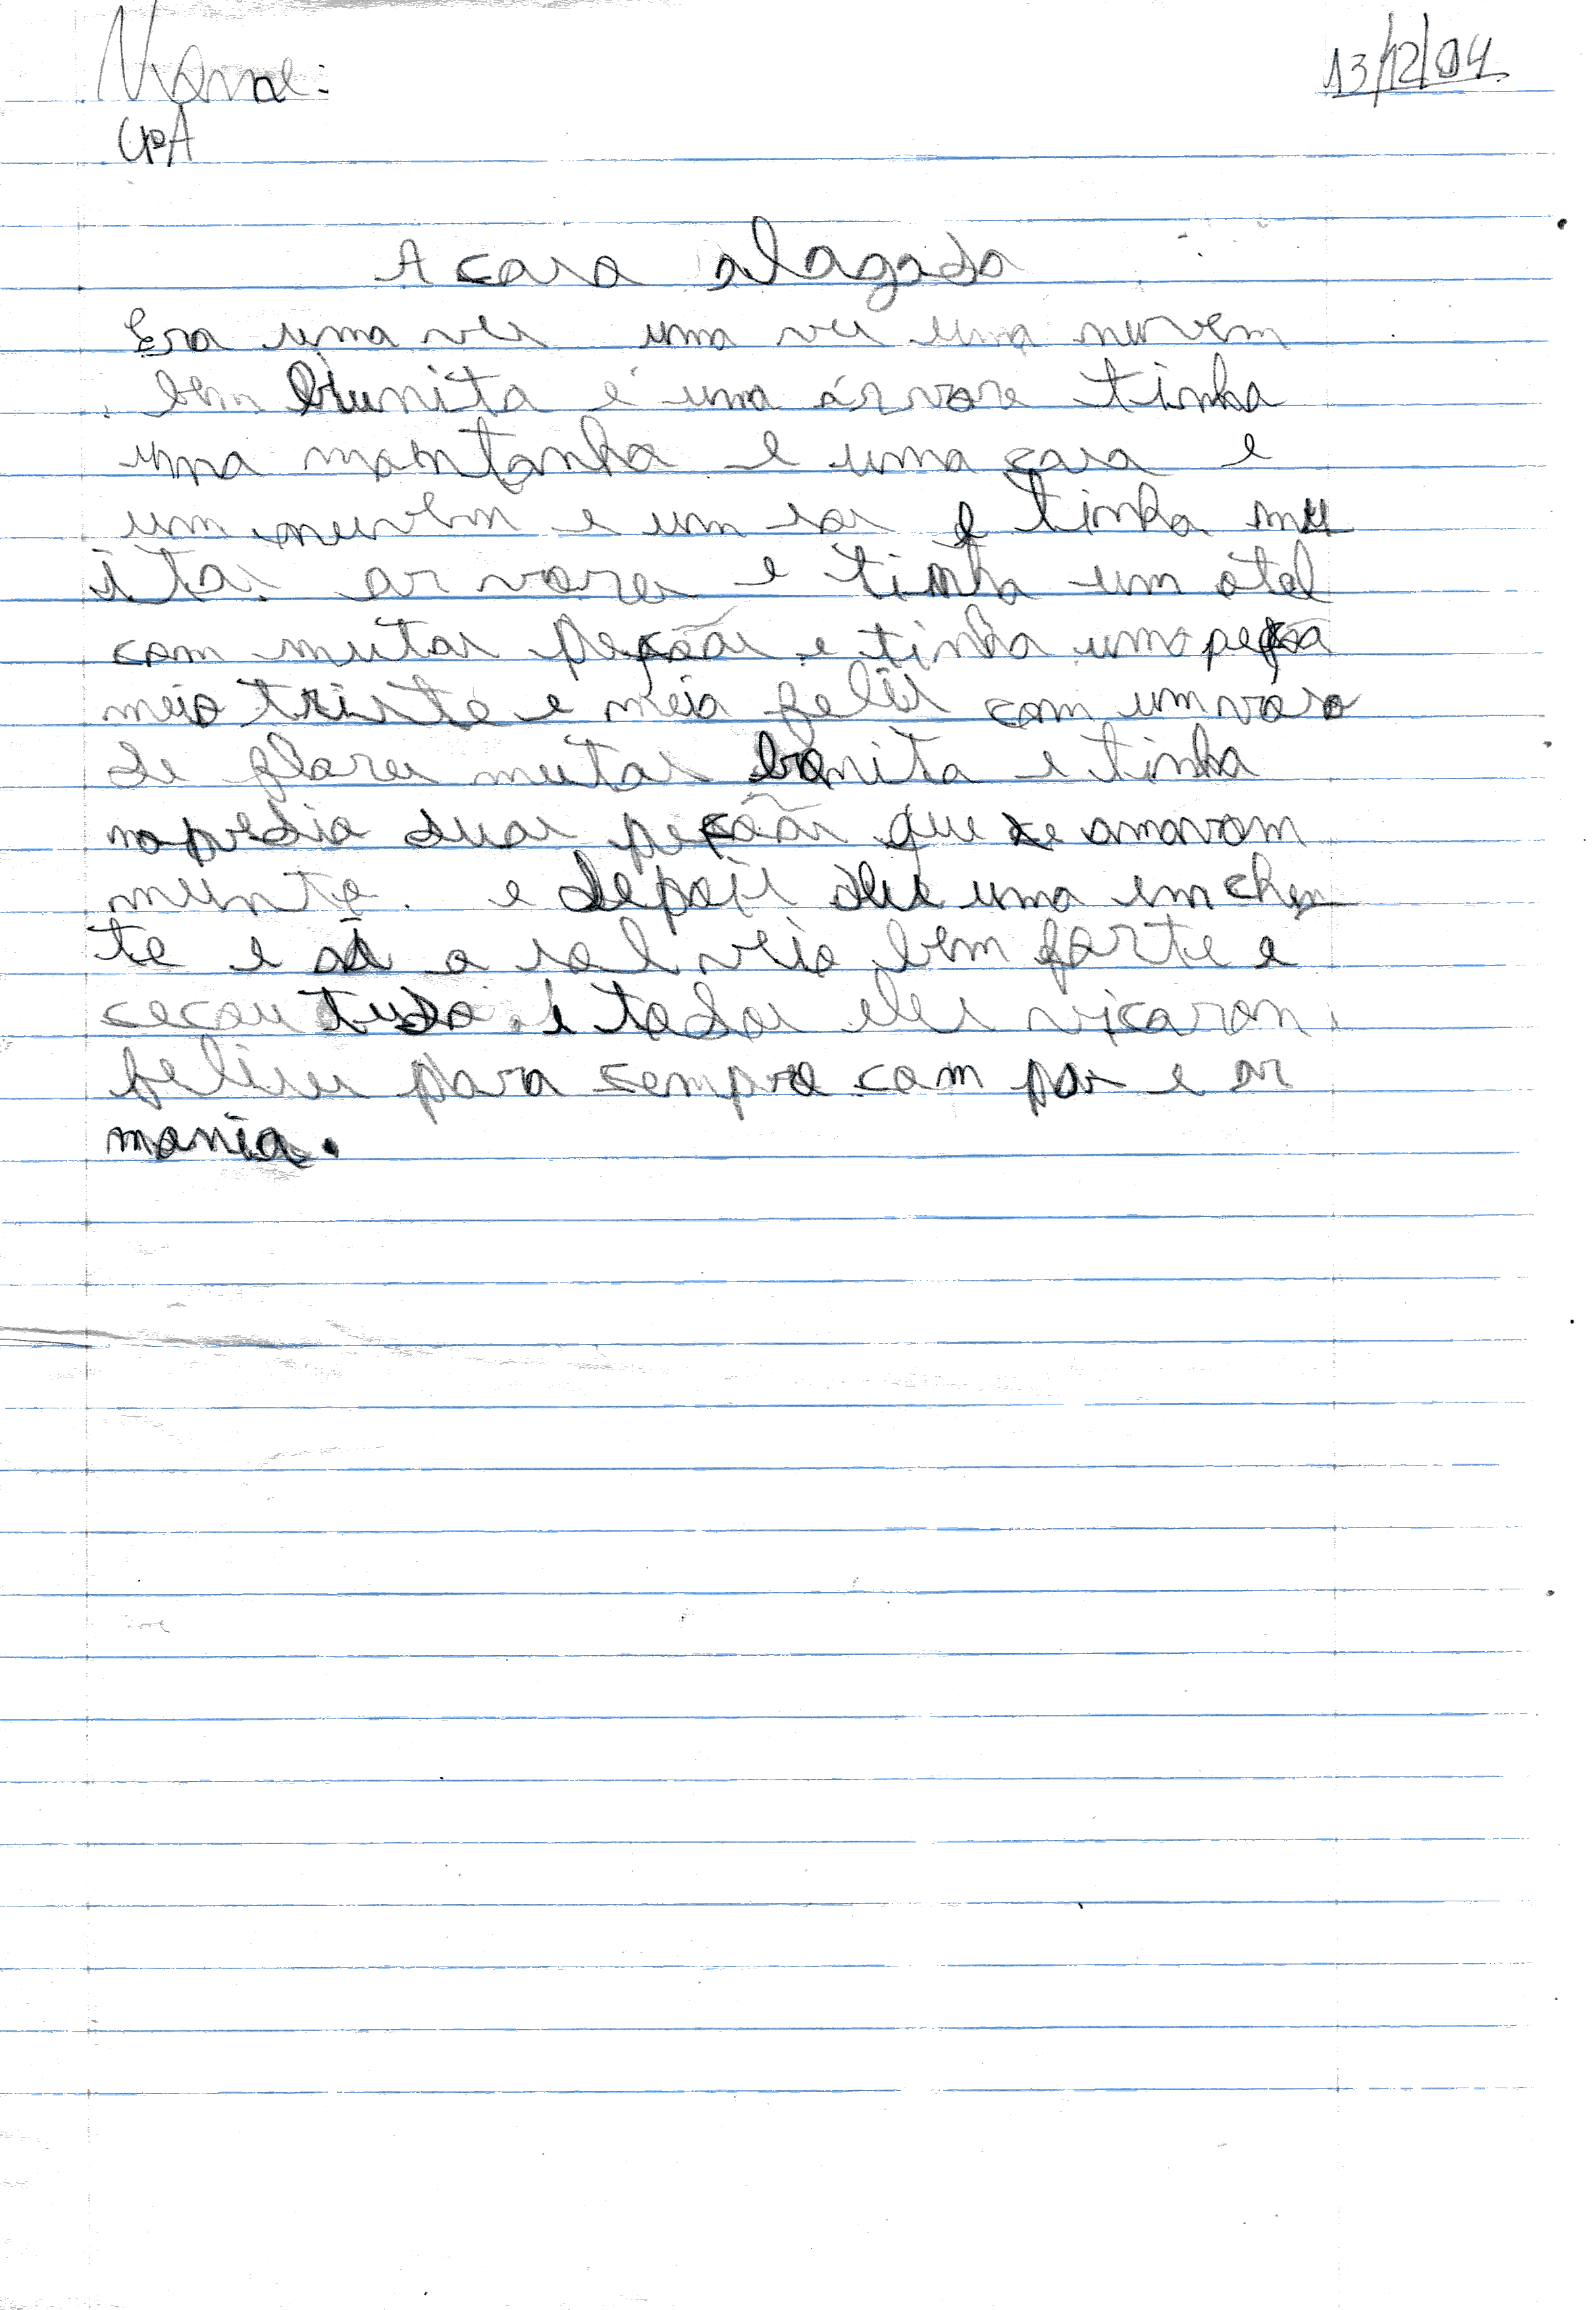 Nome: 13/12/04
U8A
A casa alagada
Era uma ves uma ves uma nuvem
bem bunita e uma árvore tinha
uma montanha e uma casa e
um nuvem e um sas e tinha mu
itas ar vores e tinha um otel
com muitas peçoas e tinha uma peçoa
meio triste e meia felis com um vaso
de flores muitas bonita e tinha
no predio duas peçoas que se amavam
munto. e depois deu uma emchen
te e aí o sol veio bem forte e
cecou tudo. e todos eles vicaram
felises para sempre com pas e ar
monia.